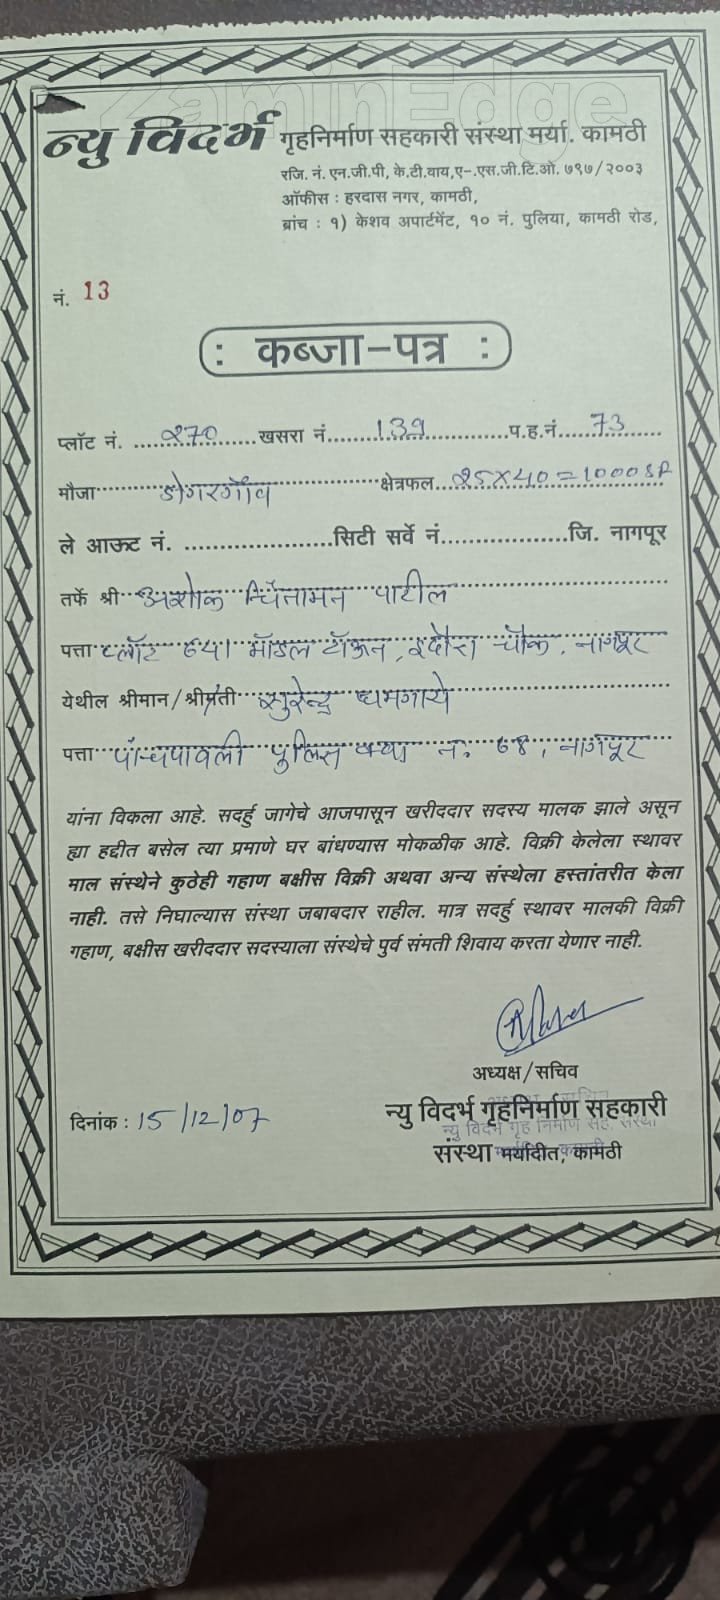 ZaminEdge
न्यु विदर्भ गृहनिर्माण सहकारी संस्था मर्या. कामठी
रजि. नं. एन.जी.पी, के.टी.वाय,ए-.एस.जी.टि.ओ. ७९७/२००३
ऑफीस : हरदास नगर, कामठी,
ब्रांच : १) केशव अपार्टमेंट, १० नं. पुलिया, कामठी रोड,
नं. 13
: कब्जा-पत्र :
प्लॉट नं. 270 खसरा नं. 139 प.ह.नं. 73
मौजा डोंगरगाँव क्षेत्रफल 25X40=1000
ले आऊट नं. सिटी सर्वे नं. जि. नागपूर
तर्फे श्री अशोक चिंतामन पाटील
पत्ता प्लॉट 641 मॉडल टॉऊन, इंदोरा चौक, नागपूर
येथील श्रीमान/श्रीमती सुरेन्द्र घमगाये
पत्ता पांचपावली पुलिस नं. नागपूर
यांना विकला आहे. सदर्हु जागेचे आजपासून खरीददार सदस्य मालक झाले असून
ह्या हद्दीत बसेल त्या प्रमाणे घर बांधण्यास मोकळीक आहे. विक्री केलेला स्थावर
माल संस्थेने कुठेही गहाण बक्षीस विक्री अथवा अन्य संस्थेला हस्तांतरीत केला
नाही. तसे निघाल्यास संस्था जबाबदार राहील. मात्र सदर्हु स्थावर मालकी विक्री
गहाण, बक्षीस खरीददार सदस्याला संस्थेचे पुर्व संमती शिवाय करता येणार नाही.
अध्यक्ष/सचिव
दिनांक : 15/12/07 न्यु विदर्भ गृहनिर्माण सहकारी
न्यु विदर्भ गृह निर्माण सह. संस्था
संस्था मर्यादीत, कामठी